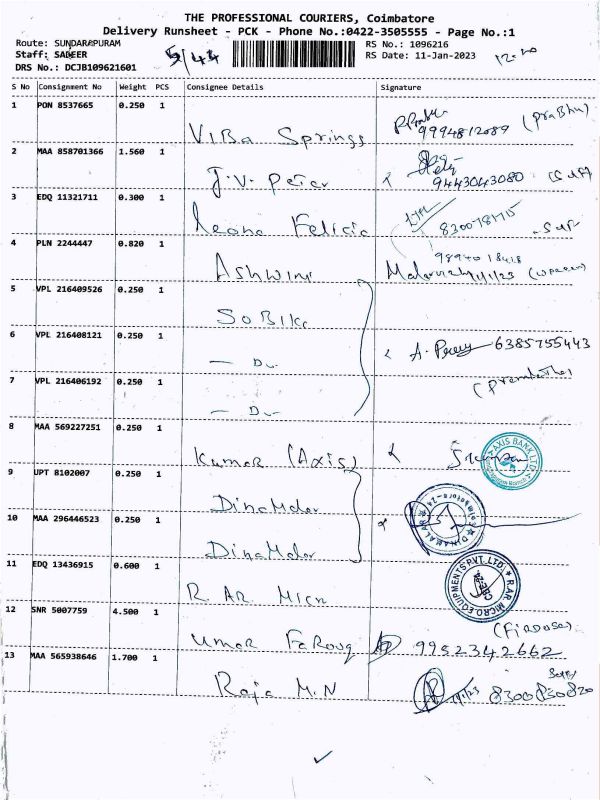 THE PROFESSIONAL COURIERS, Coimbatore
Delivery Runsheet - PCK - Phone No.:0422-3505555 - Page No.:1
Route: SUNDARAPURAM
Staff: SADEER
DRS No.: DCJB109621601
RS No.: 1096216
RS Date: 11-Jan-2023
S No Consignment No Weight PCS Consignee Details Signature
1 PON 8537665 0.250 1
ViBa Springs
9994812089 (Prabhu)
2 MAA 858701366 1.560 1
J.V. Peter
9443043080
3 EDQ 11321711 0.300 1
Leona Felicia
4 PLN 2244447 0.820 1
Ashwini
5 VPL 216409526 0.250 1
SoBika
6 VPL 216408121 0.250 1
— Do -
6385755443
7 VPL 216406192 0.250 1
— Do -
8 MAA 569227251 0.250 1
Kumar (Axis)
AXIS BANK LTD
9 UPT 8102007 0.250 1
DinaMalar
DINAMALAR
10 MAA 296446523 0.250 1
DinaMalar
11 EDQ 13436915 0.600 1
R. AR. Micro
R.AR MICRO EQUIPMENTS PVT. LTD.
CBE-24
12 SNR 5007759 4.500 1
Umar Farouq
(Firdose)
9952342662
13 MAA 565938646 1.700 1
Raja M.N
8300830820